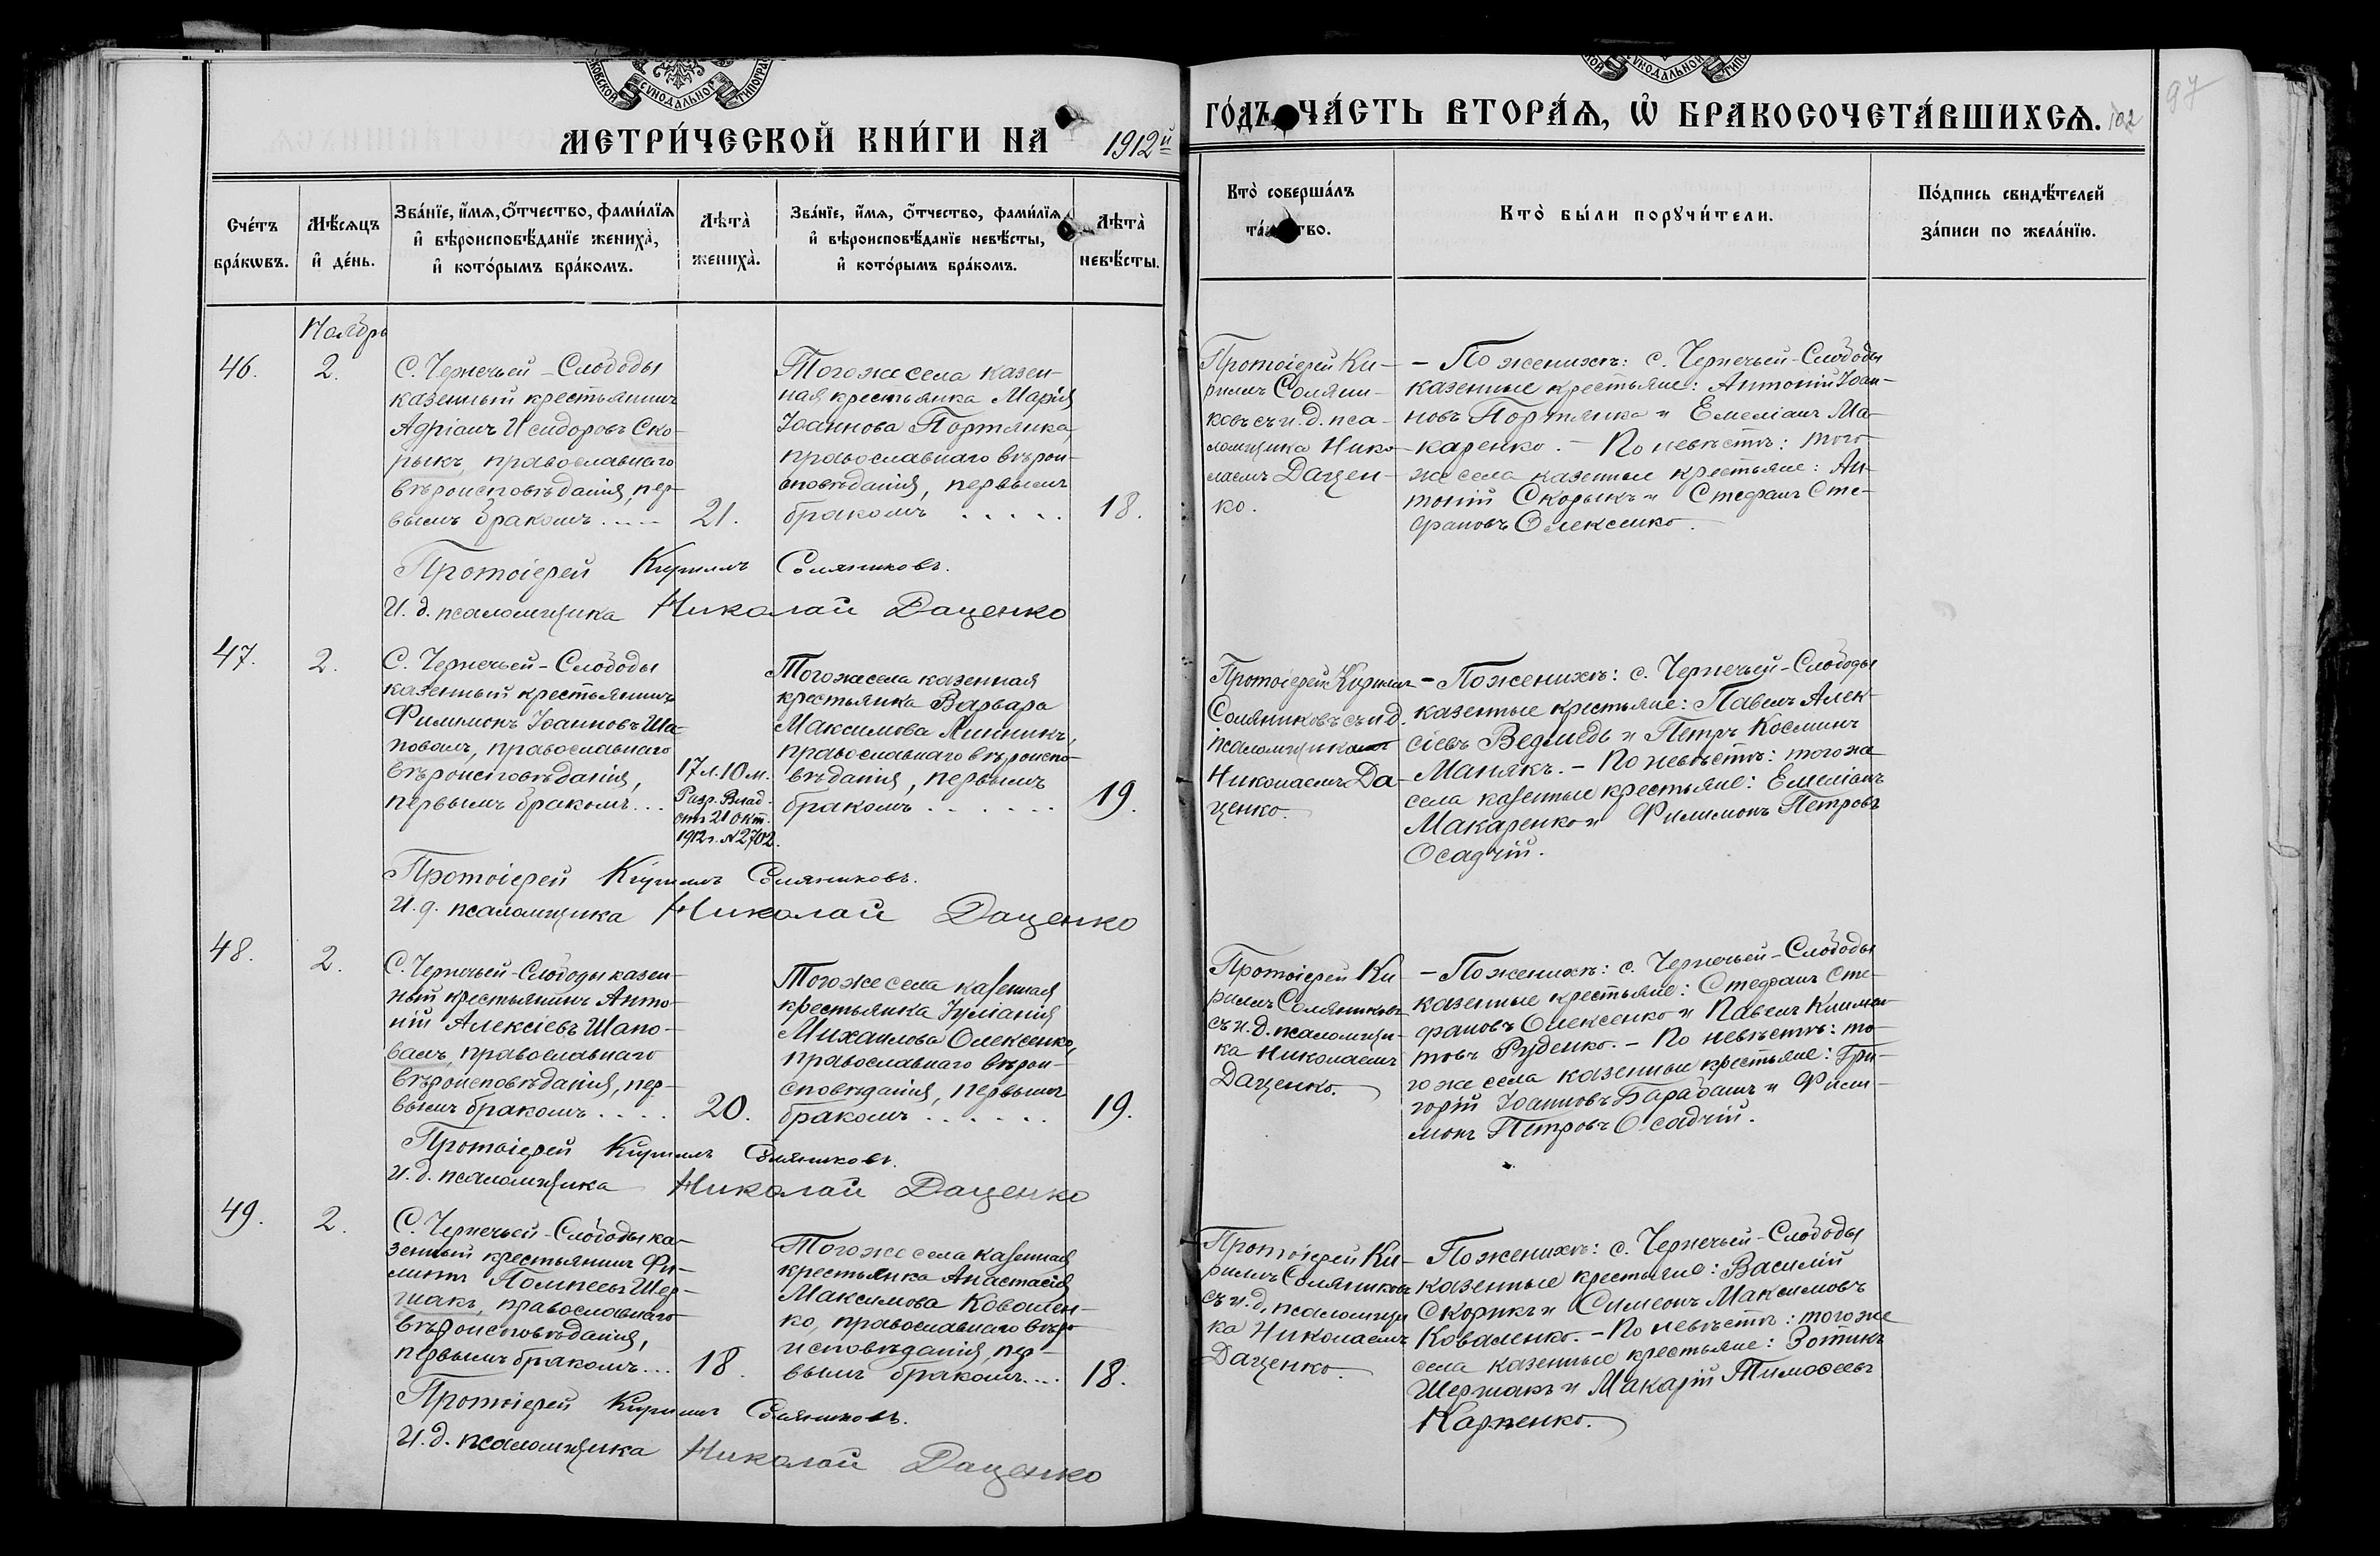 МЕТРИ́ЧЕСКОЙ КНИ́ГИ НА 1912й
ГО́ДЪ ЧА́СТЬ ВТОРА́Ѧ, Ѡ҆ БРАКОСОЧЕТА́ВШИХСѦ. 102
97
Сче́тъ бра́кѡвъ.
Мѣ́сѧцъ и҆ де́нь.
Зва́нїе, и҆́мѧ, ѻ҆́тчество, фами́лїѧ
и҆ вѣроисповѣ́данїе жениха̀,
и҆ кото́рымъ бра́комъ.
Лѣта̀ жениха̀.
Зва́нїе, и҆́мѧ, ѻ҆́тчество, фами́лїѧ
и҆ вѣроисповѣ́данїе невѣ́сты,
и҆ кото́рымъ бра́комъ.
Лѣта̀ невѣ́сты.
Кто̀ соверша́лъ
та тво.
Кто̀ бы́ли порꙋчи́тели.
По́дпись свидѣ́телей
за́писи по жела́нїю.
Ноябрь
46.
2.
С. Чернечьей-Слободы
казенный крестьянинъ
Адріанъ Исидоровъ Ско-
рыкъ, православнаго
вѣроисповѣданія, пер-
вымъ бракомъ....
21.
Того же села казен-
ная крестьянка Марія
Іоаннова Портянка,
православнаго вѣрои-
сповѣданія, первымъ
бракомъ .....
18.
Протоіерей Ки-
риллъ Соляни-
ковъ съ и.д. пса-
ломщика Нико-
лаемъ Дацен-
ко.
- По женихѣ: с. Чернечьей-Слободы
казенные крестьяне: Антоній Іоан-
новъ Портянка и Емеліанъ Ма-
каренко. - По невѣстѣ: того
же села казенные крестьяне: Ан-
тоній Скорыкъ и Стефанъ Сте-
фановъ Олексенко.
Протоіерей Кириллъ Соляниковъ.
И. д. псаломщика Николай Даценко
47.
2.
С. Чернечьей-Слободы
казенный крестьянинъ
Филимонъ Іоанновъ Ша-
повалъ, православнаго
вѣроисповѣданія,
первымъ бракомъ...
17 л. 10 м.
Разр. Влад.
отъ 21 окт.
1912 г. №2702.
Того же села казенная
крестьянка Варвара
Максимова Линникъ,
православнаго вѣроиспо-
вѣданія, первымъ
бракомъ ......
19.
Протоіерей Кириллъ
Соляниковъ съ и.д.
псаломщика
Николаемъ Да-
ценко.
- По женихѣ: с. Чернечьей-Слободы
казенные крестьяне: Павелъ Алек-
сіевъ Ведмедь и Петръ Косминъ
Манякъ. - По невѣстѣ: того же
села казенные крестьяне: Емеліанъ
Макаренко и Филимонъ Петровъ
Осадчій.
Протоіерей Кириллъ Соляниковъ.
И. д. псаломщика Николай Даценко
48.
2.
С. Чернечьей-Слободы казен-
ный крестьянинъ Анто-
ній Алексіевъ Шапо-
валъ, православнаго
вѣроисповѣданія, пер-
вымъ бракомъ....
20.
Того же села казенная
крестьянка Іуліанія
Михаилова Олексенко,
православнаго вѣрои-
сповѣданія, первымъ
бракомъ ......
19.
Протоіерей Ки-
риллъ Соляниковъ
съ и. д. псаломщи-
ка Николаемъ
Даценко.
- По женихѣ: с. Чернечьей-Слободы
казенные крестьяне: Стефанъ Сте-
фановъ Олексенко и Павелъ Климен-
товъ Руденко. - По невѣстѣ: то-
го же села казенные крестьяне: Гри-
горій Іоанновъ Барабашъ и Фили-
монъ Петровъ Осадчій.
Протоіерей Кириллъ Соляниковъ.
И. д. псаломщика Николай Даценко
49.
2.
С. Чернечьей-Слободы ка-
зенный крестьянинъ Фи-
липпъ Помпеевъ Шер-
шакъ, православнаго
вѣроисповѣданія,
первымъ бракомъ...
18.
Того же села казенная
крестьянка Анастасія
Максимова Ковален-
ко, православнаго вѣро-
исповѣданія, пер-
вымъ бракомъ....
18.
Протоіерей Ки-
риллъ Соляниковъ
съ и. д. псаломщи
ка Николаемъ
Даценко.
По женихѣ: с. Чернечьей-Слободы
казенные крестьяне: Василій
Скорикъ и Симеонъ Максимовъ
Коваленко. - По невѣстѣ: того же
села казенные крестьяне: Зотикъ
Шершакъ и Макарій Тимоѳеевъ
Карпенко.
Протоіерей Кириллъ Соляниковъ.
И. д. псаломщика Николай Даценко